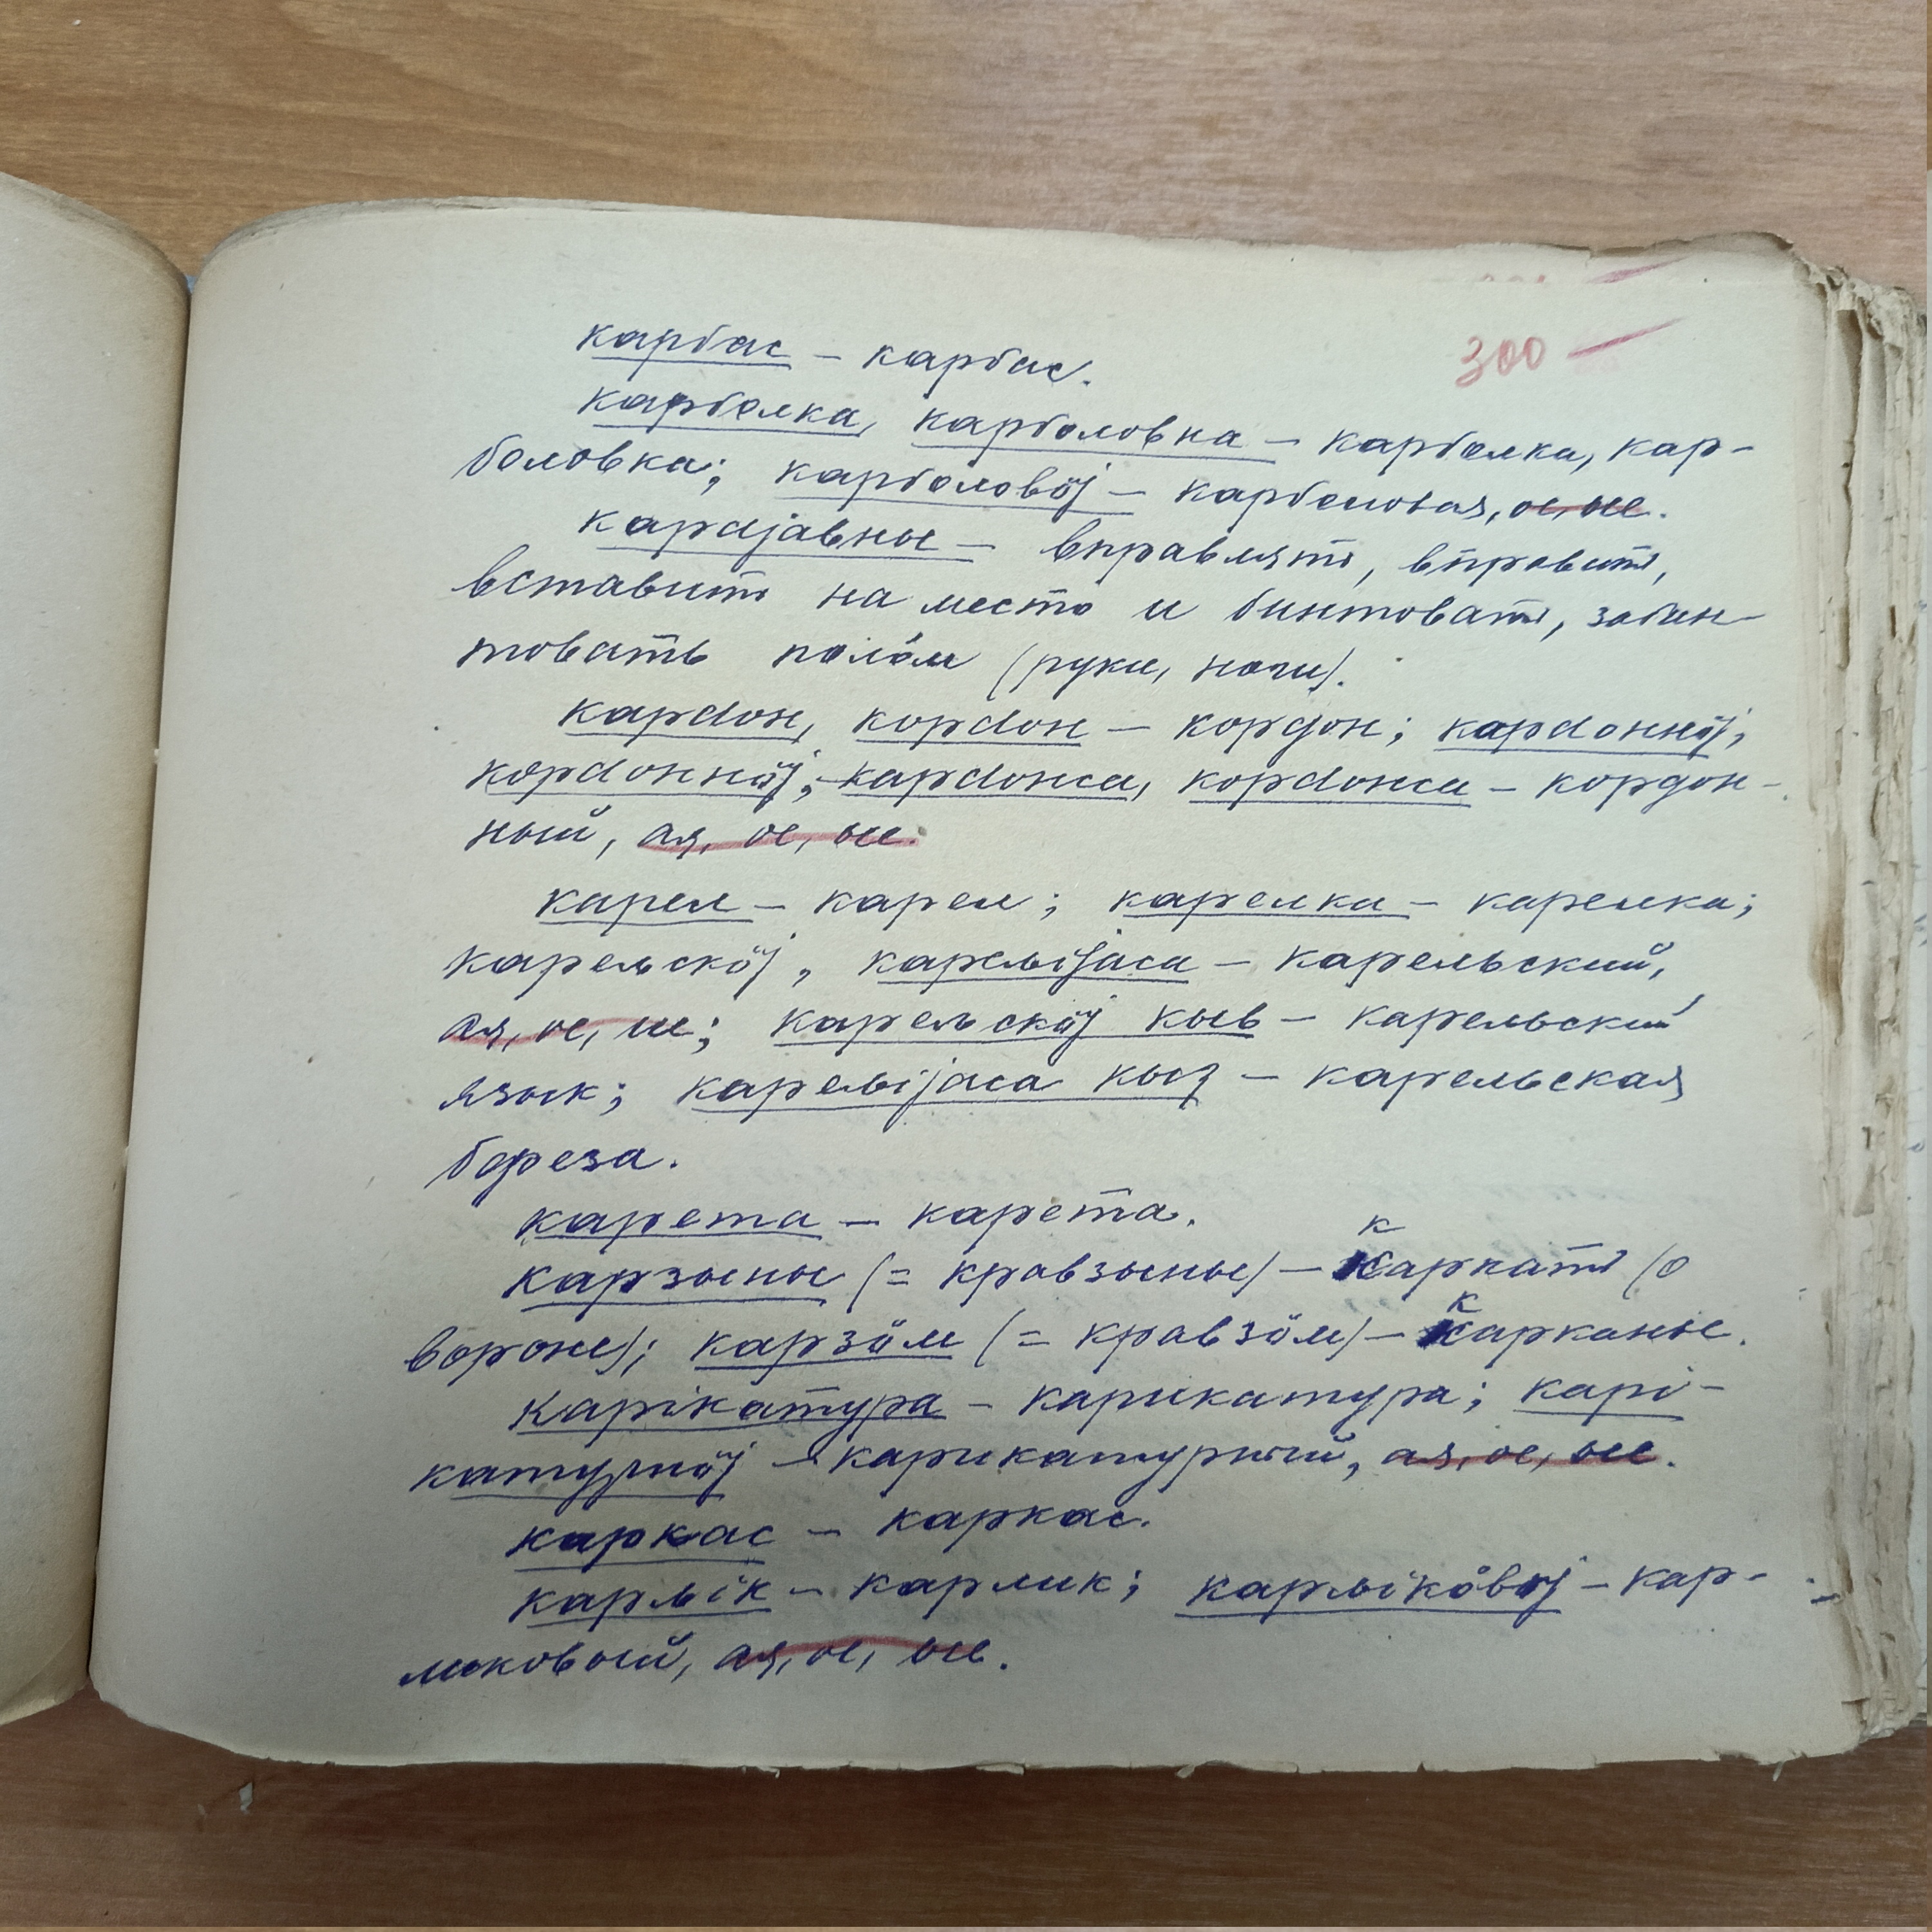 300
карбас – карбас.
карболка, карболовка – карболка, кар-
боловка; карболовӧј – карболовая, ое, ые.
карајавны – вправлять, вправить,
вставить на место и бинтовать, забин-
товать (руки, ноги).
кардон, кордон – кордон; кардоннӧј,
кордоннӧј, кардонса, кордонса – кордон-
ный, ая, ое, ые.
карел – карел; карелка – карелка;
карельскӧј, карельіјаса – карельский,
ая, ое, ие; карельскӧј кыв – карельский
язык; карельіјаса – карельская
береза.
карета – карета.
карзыны (= кравзыны) – каркать (о
вороне); карзӧм (= кравзӧм) – карканье.
карікатура – карикатура; карі-
катурнӧј – карикатурный, ая, ое, ые.
каркас – каркас.
карлык – карлик; карльікӧвӧј – кар-
ликовый, ая, ое, ые.